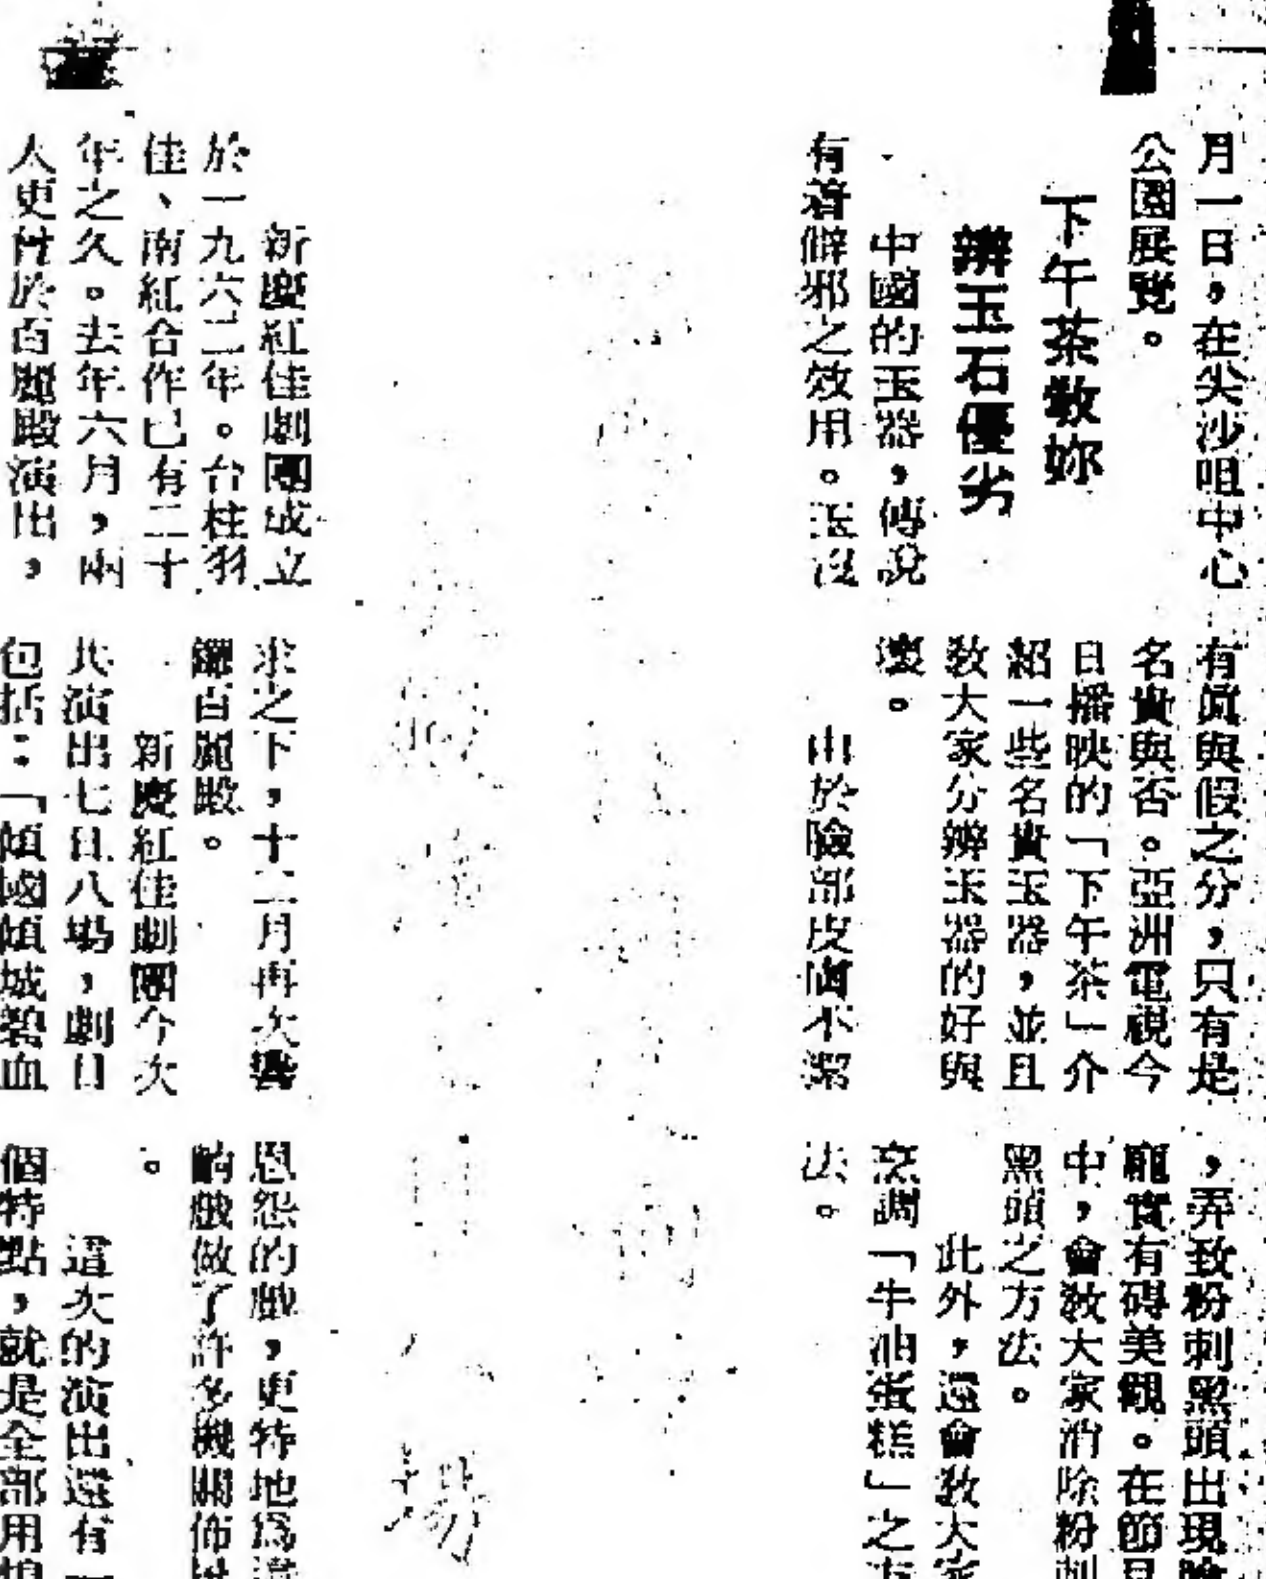 月一日，在尖沙咀中心
公園展覽。
下午茶教妳
辨玉石優劣
中國的玉器，傳說
有着僻邪之效用。玉沒
有眞與假之分，只有是
名貴與否。亞洲電視今
日播映的「下午茶」介
紹一些名貴玉器，並且
教大家分辨玉器的好與
壞。
由於臉部皮膚不潔
，弄致粉刺黑頭出現臉
龐實有碍美觀。在節目
中，會教大家消除粉刺
黑頭之方法。
此外，還會教大家
烹調「牛油蛋糕」之方
法。
新慶紅佳劇團成立
於一九六二年。台柱羽
佳、南紅合作已有二十
年之久。去年六月，兩
人更曾於百麗殿演出，
求之下，十二月再次響
鑼百麗殿。
新慶紅佳劇團今次
共演出七日八場，劇目
包括：「傾國傾城碧血
恩怨的戲，更特地爲
齣戲做了許多機關佈
。
這次的演出還有一
個特點，就是全部用
場